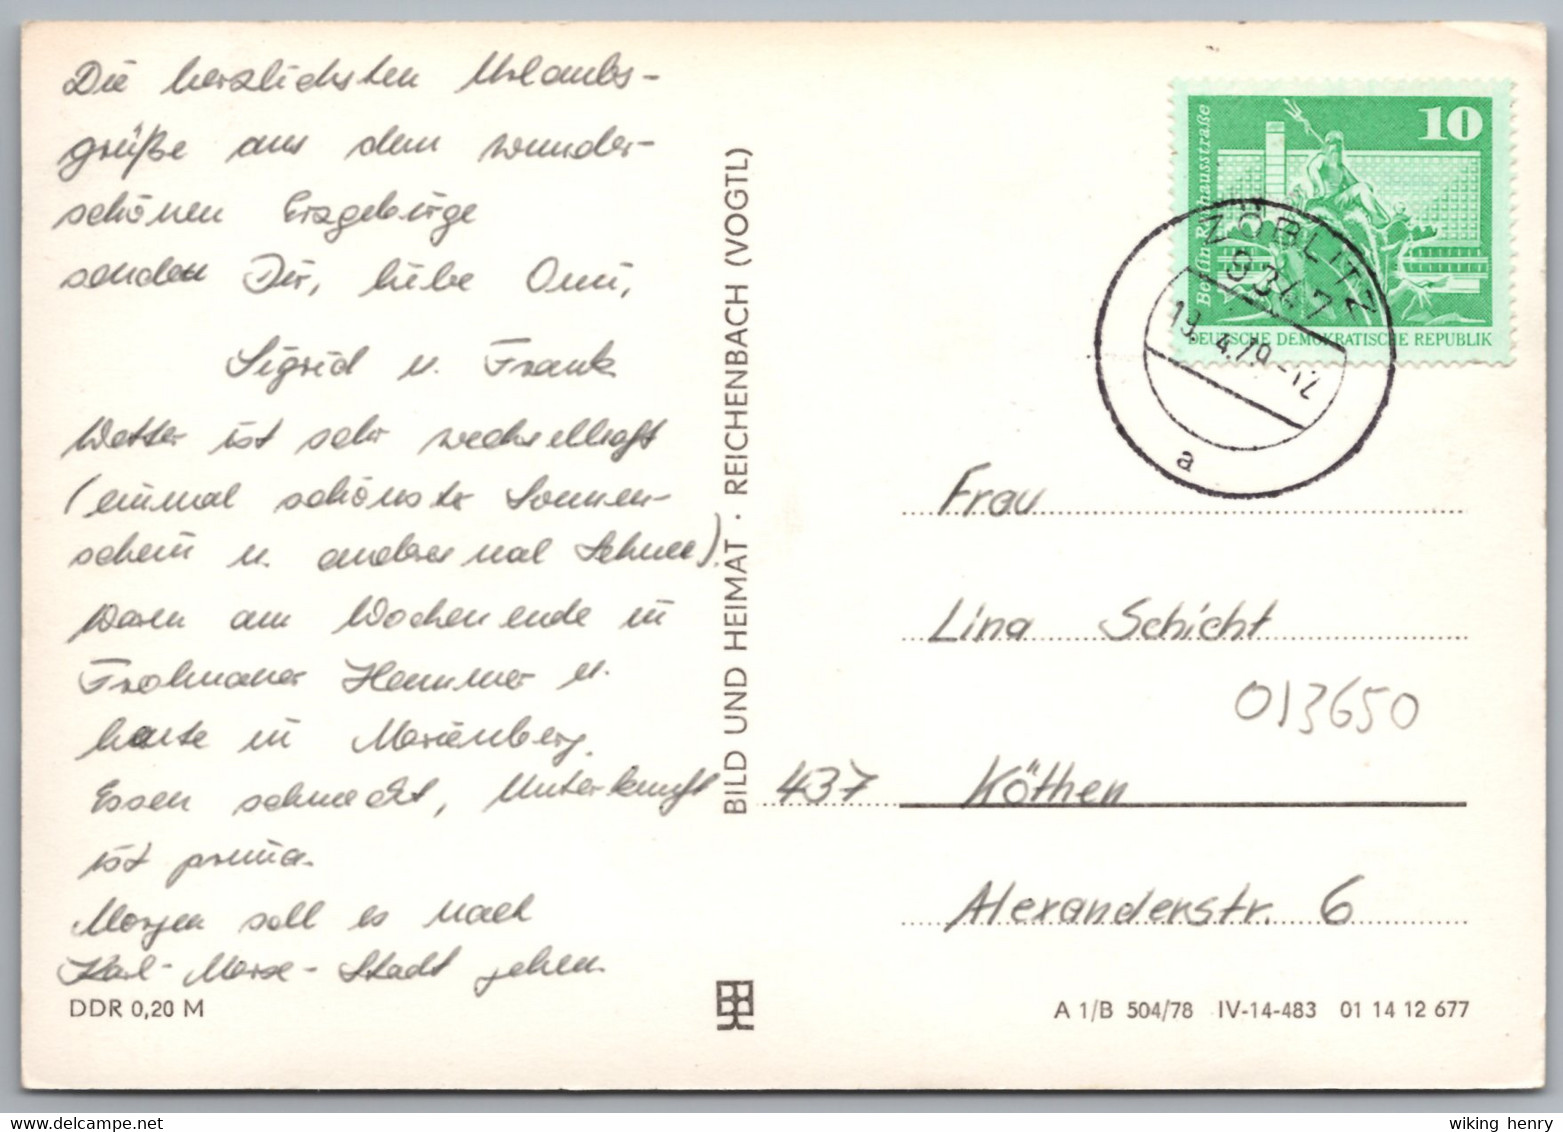 Die herzlichsten Urlaubs-
grüße aus dem wunder-
schönen Erzgebirge
senden Dir, liebe Omi,
Sigrid u. Frank
Wetter ist sehr wechselhaft
(einmal schönster Sonnen-
schein u. anderes mal Schnee).
Waren am Wochenende in
Frohnauer Hammer u.
heute in Marienberg.
Essen schmeckt, Unterkunft
ist prima.
Morgen soll es nach
Karl-Marx-Stadt gehen.
DDR 0,20 M
BILD UND HEIMAT · REICHENBACH (VOGTL)
10
Berlin Rathausstraße
DEUTSCHE DEMOKRATISCHE REPUBLIK
ZÖBLITZ
9347
19.4.79-12
a
Frau
Lina Schicht
013650
437 Köthen
Alexanderstr. 6
A 1/B 504/78 IV-14-483 01 14 12 677
wiking henry